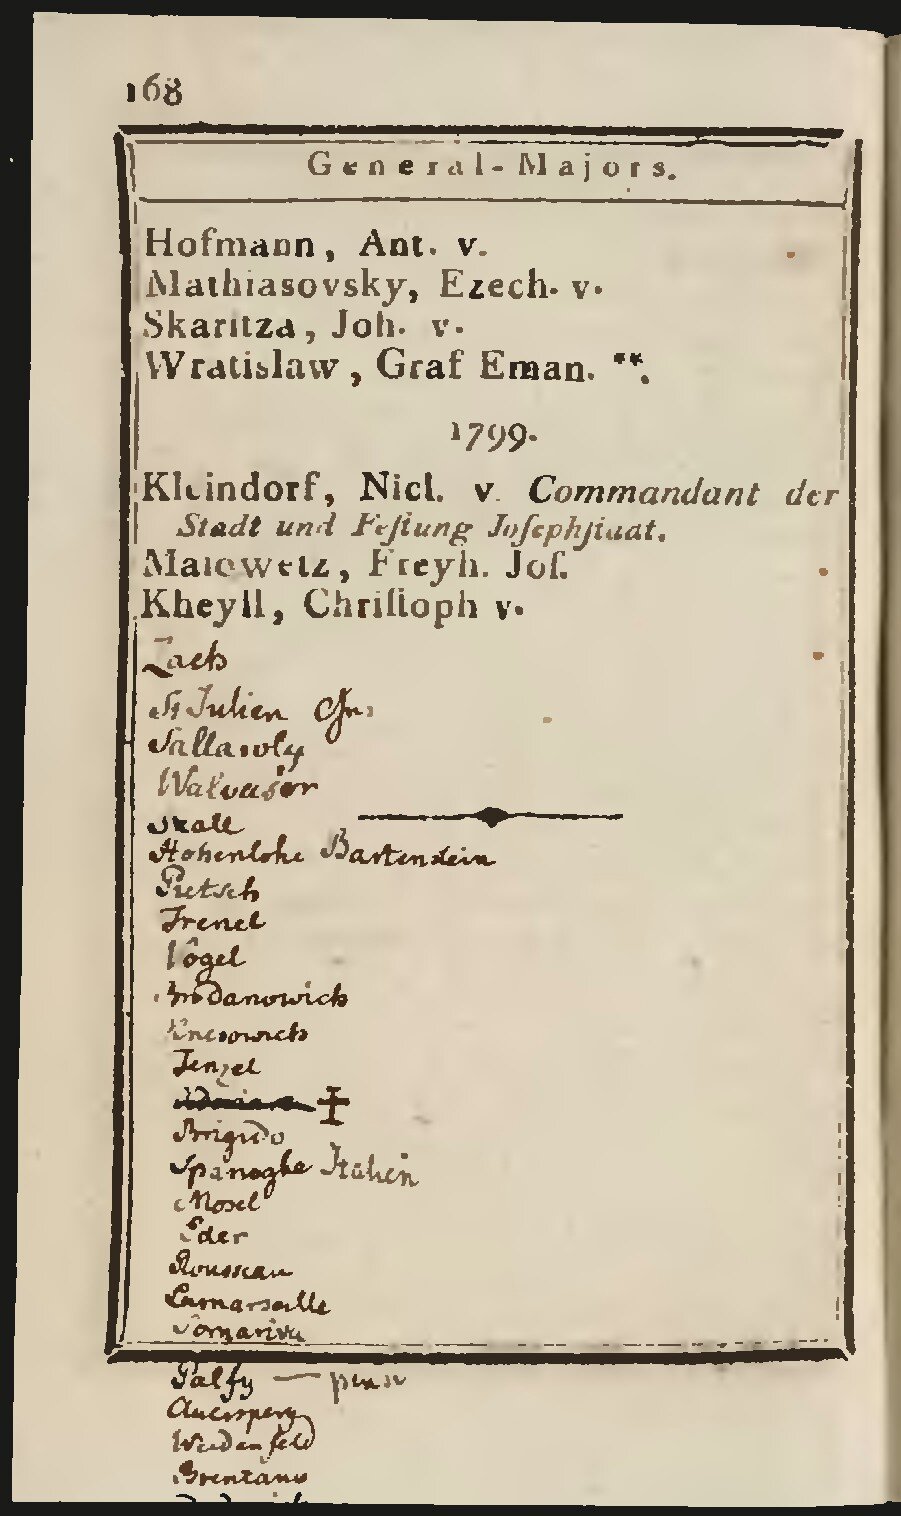 168
General-Majors.
Hofmann, Ant. v.
Mathiasovsky, Ezech. v.
Skaritza, Joh. v.
Wratislaw, Graf Eman. **.
1799.
Kleindorf, Nicl. v. Commandant der
Stadt und Feſtung Joſephſtaat.
Malowetz, Freyh. Joſ.
Kheyll, Chriſtoph v.
Zach
St Julien
Wallvasor
Skall
Hohenlohe Bartenstein
Pietsch
Frenel
Vogel
Knesowich
Jenzel
Brigido
Spanoghe Italien
Mosel
Eder
Rousseau
Lamarseille
Somariva
Palfy —
Auersperg
Weidenfeld
Brentano